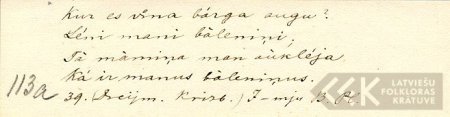 Kur es viņa bārga augu?
Lēni mani bāleniņi;
Tā māmiņa man aūklēja
Kā ir manus bāleniņus.
113a
39. (Dreijm. Krist.) J-mju B. A.
LATVIEŠU
FOLKLORAS
KRĀTUVE